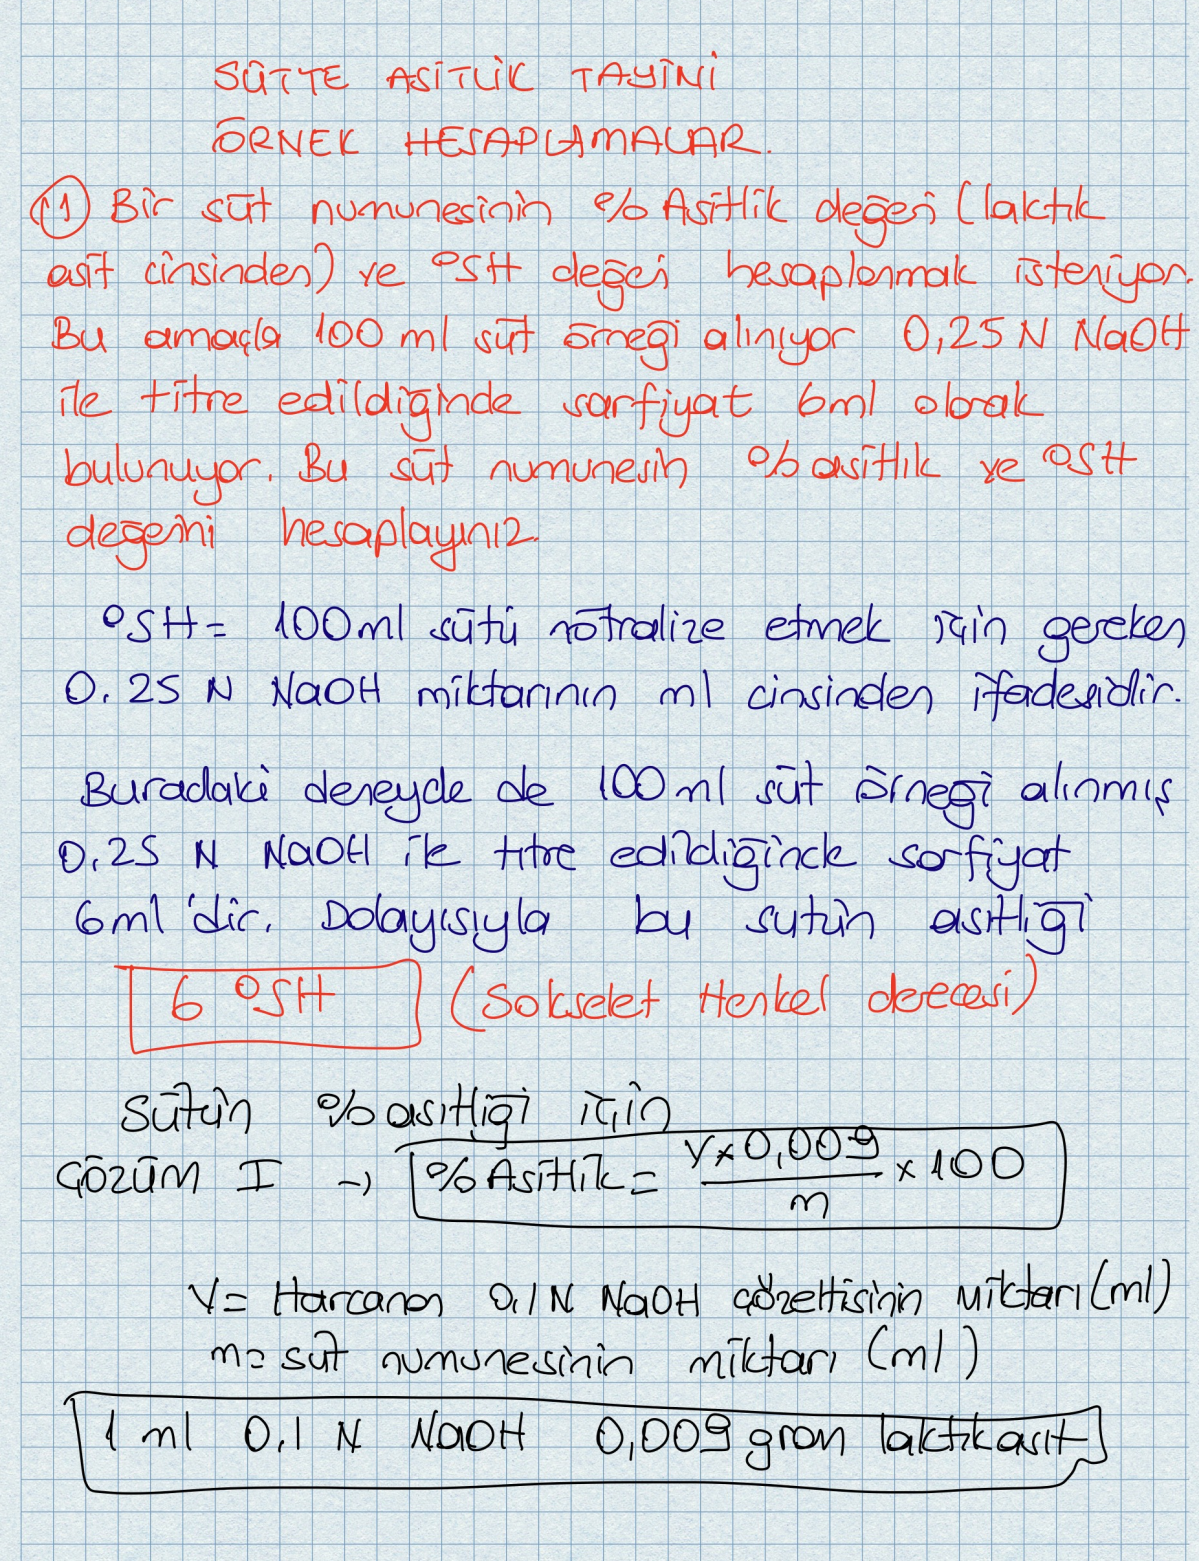 SÜTTE ASİTLİK TAYİNİ
ÖRNEK HESAPLAMALAR.
1) Bir süt numunesinin % Asitlik değeri (laktik
asit cinsinden) ve °SH değeri hesaplanmak isteniyor.
Bu amaçla 100 ml süt örneği alınıyor 0,25 N NaOH
ile titre edildiğinde sarfiyat 6ml olarak
bulunuyor. Bu süt numunesin % asitlik ve °SH
değerini hesaplayınız.
°SH = 100 ml sütü nötralize etmek için gereken
0.25 N NaOH miktarının ml cinsinden ifadesidir.
Buradaki deneyde de 100 ml süt örneği alınmış
0.25 N NaOH ile titre edildiğinde sarfiyat
6 ml 'dir. Dolayısıyla bu sütün asitliği
6 °SH (Sokselet Henkel derecesi)
Sütün % asitliği için
ÇÖZÜM I → % Asitlik = V x 0,009 / m x 100
V = Harcanan 0.1 N NaOH çözeltisinin miktarı (ml)
m = süt numunesinin miktarı (ml)
1 ml 0.1 N NaOH 0,009 gram laktik asit